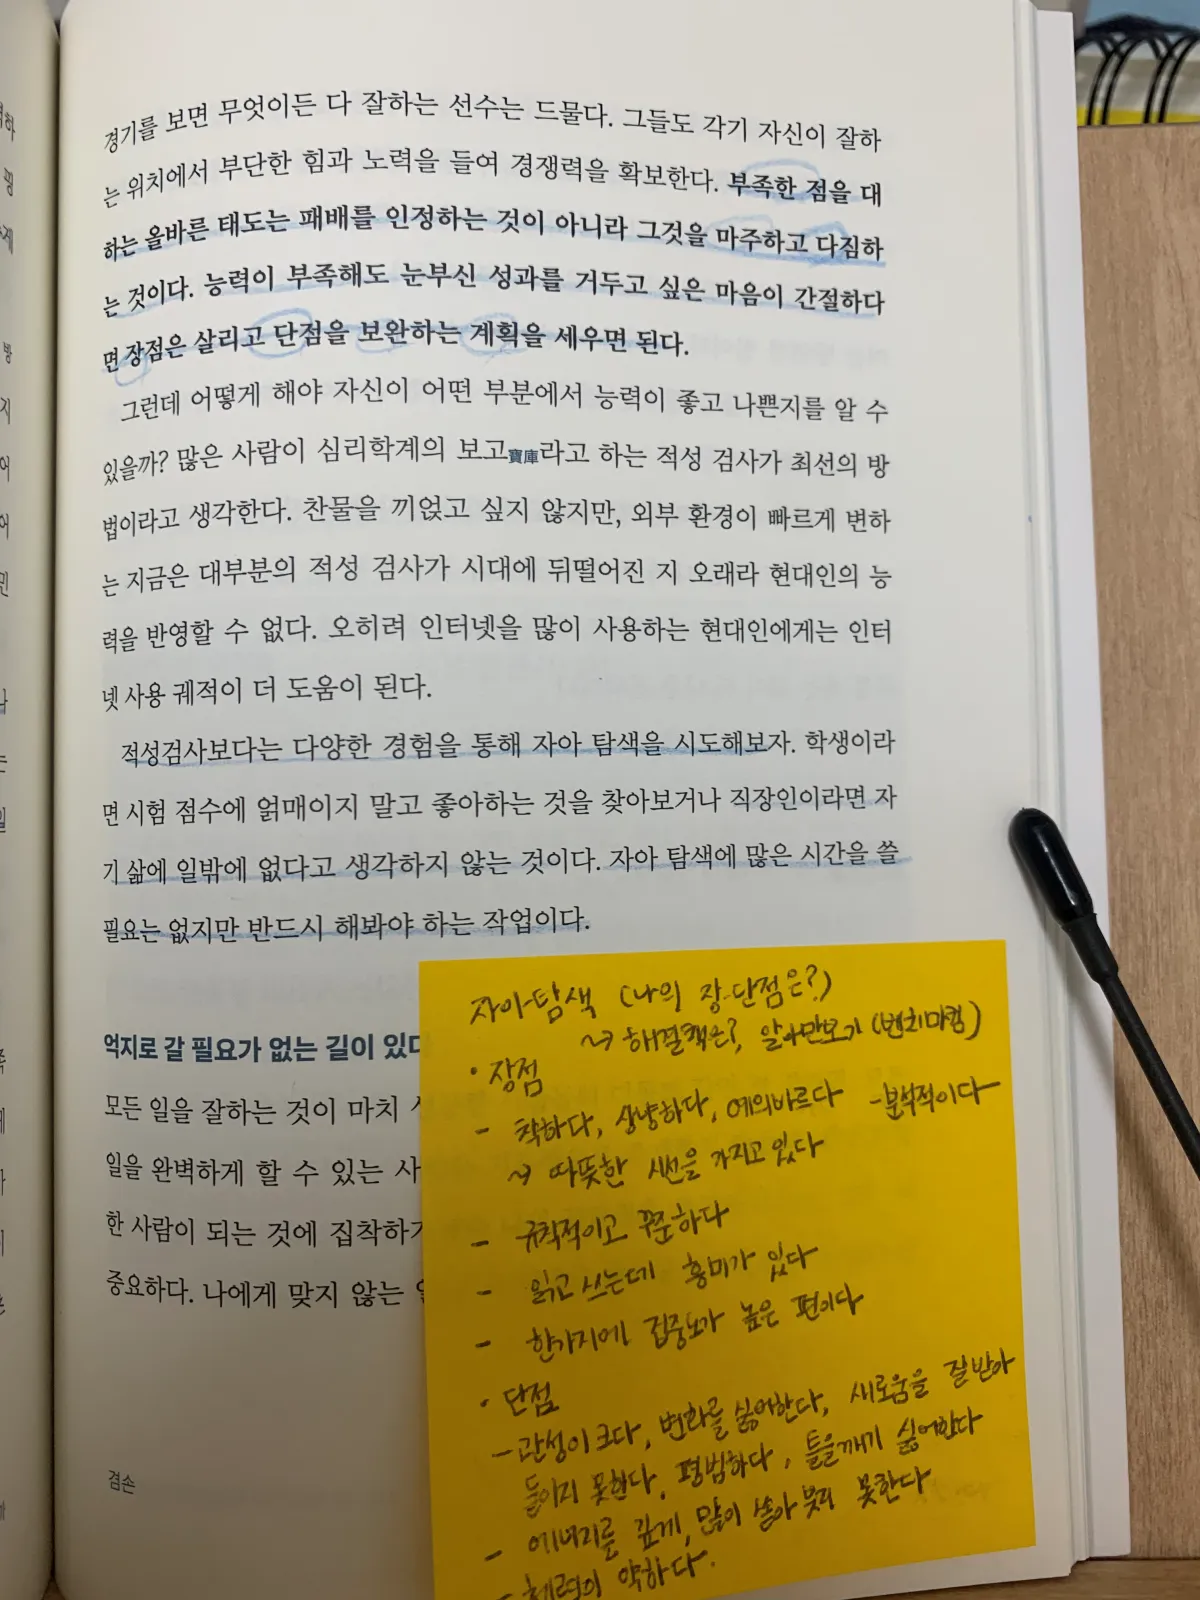 경기를 보면 무엇이든 다 잘하는 선수는 드물다. 그들도 각기 자신이 잘하
는 위치에서 부단한 힘과 노력을 들여 경쟁력을 확보한다. 부족한 점을 대
하는 올바른 태도는 패배를 인정하는 것이 아니라 그것을 마주하고 다짐하
는 것이다. 능력이 부족해도 눈부신 성과를 거두고 싶은 마음이 간절하다
면 장점은 살리고 단점을 보완하는 계획을 세우면 된다.
그런데 어떻게 해야 자신이 어떤 부분에서 능력이 좋고 나쁜지를 알 수
있을까? 많은 사람이 심리학계의 보고寶庫라고 하는 적성 검사가 최선의 방
법이라고 생각한다. 찬물을 끼얹고 싶지 않지만, 외부 환경이 빠르게 변하
는 지금은 대부분의 적성 검사가 시대에 뒤떨어진 지 오래라 현대인의 능
력을 반영할 수 없다. 오히려 인터넷을 많이 사용하는 현대인에게는 인터
넷 사용 궤적이 더 도움이 된다.
적성검사보다는 다양한 경험을 통해 자아 탐색을 시도해보자. 학생이라
면 시험 점수에 얽매이지 말고 좋아하는 것을 찾아보거나 직장인이라면 자
기 삶에 일밖에 없다고 생각하지 않는 것이다. 자아 탐색에 많은 시간을 쓸
필요는 없지만 반드시 해봐야 하는 작업이다.
억지로 갈 필요가 없는 길이 있다
모든 일을 잘하는 것이 마치
일을 완벽하게 할 수 있는 사
한 사람이 되는 것에 집착하기
중요하다. 나에게 맞지 않는
겸손
자아탐색 (나의 장·단점은?)
~> 해결책은?, 알아만보기 (벤치마킹)
• 장점
- 착하다, 상냥하다, 예의바르다 - 분석적이다
~> 따뜻한 시선을 가지고 있다
- 규칙적이고 꾸준하다
- 읽고 쓰는데 흥미가 있다
- 한가지에 집중도가 높은 편이다
• 단점
- 관성이 크다, 변화를 싫어한다, 새로움을 잘 받아
들이지 못한다, 평범하다, 틀을깨기 싫어한다
- 에너지를 깊게, 많이 쏟아 붓지 못한다
- 체력이 약하다.